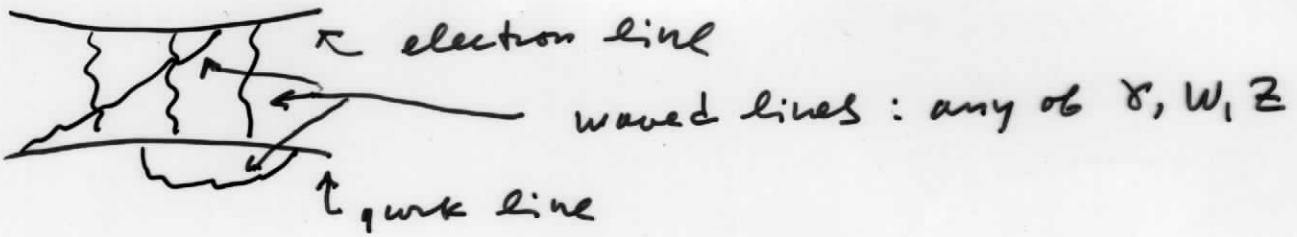 electron line
waved lines : any of γ, W, Z
quark line